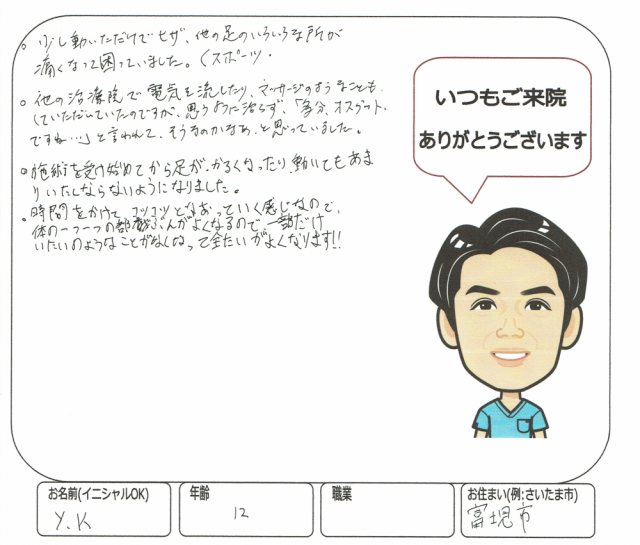 。少し動いただけでヒザ、他の足のいろいろな所が
痛くなって困っていました。(スポーツ・
。他の治療院で電気を流したり、マッサージのようなことも
していただいていたのですが、思うように治らず、「多分、オスグット
ですね…」と言われて、そうなのかなあ、と思っていました。
。施術を受け始めてから足が、かるくなったり、動いてもあま
りいたくならないようになりました。
。時間をかけて、コツコツとなおっていく感じなので、
体の一つ一つの部分がよくなるので、一部だけ
いたいのようなことがなくなって全たいがよくなります!!
いつもご来院
ありがとうございます
お名前(イニシャルOK)
Y.K
年齢
12
職業
お住まい(例:さいたま市)
富児市